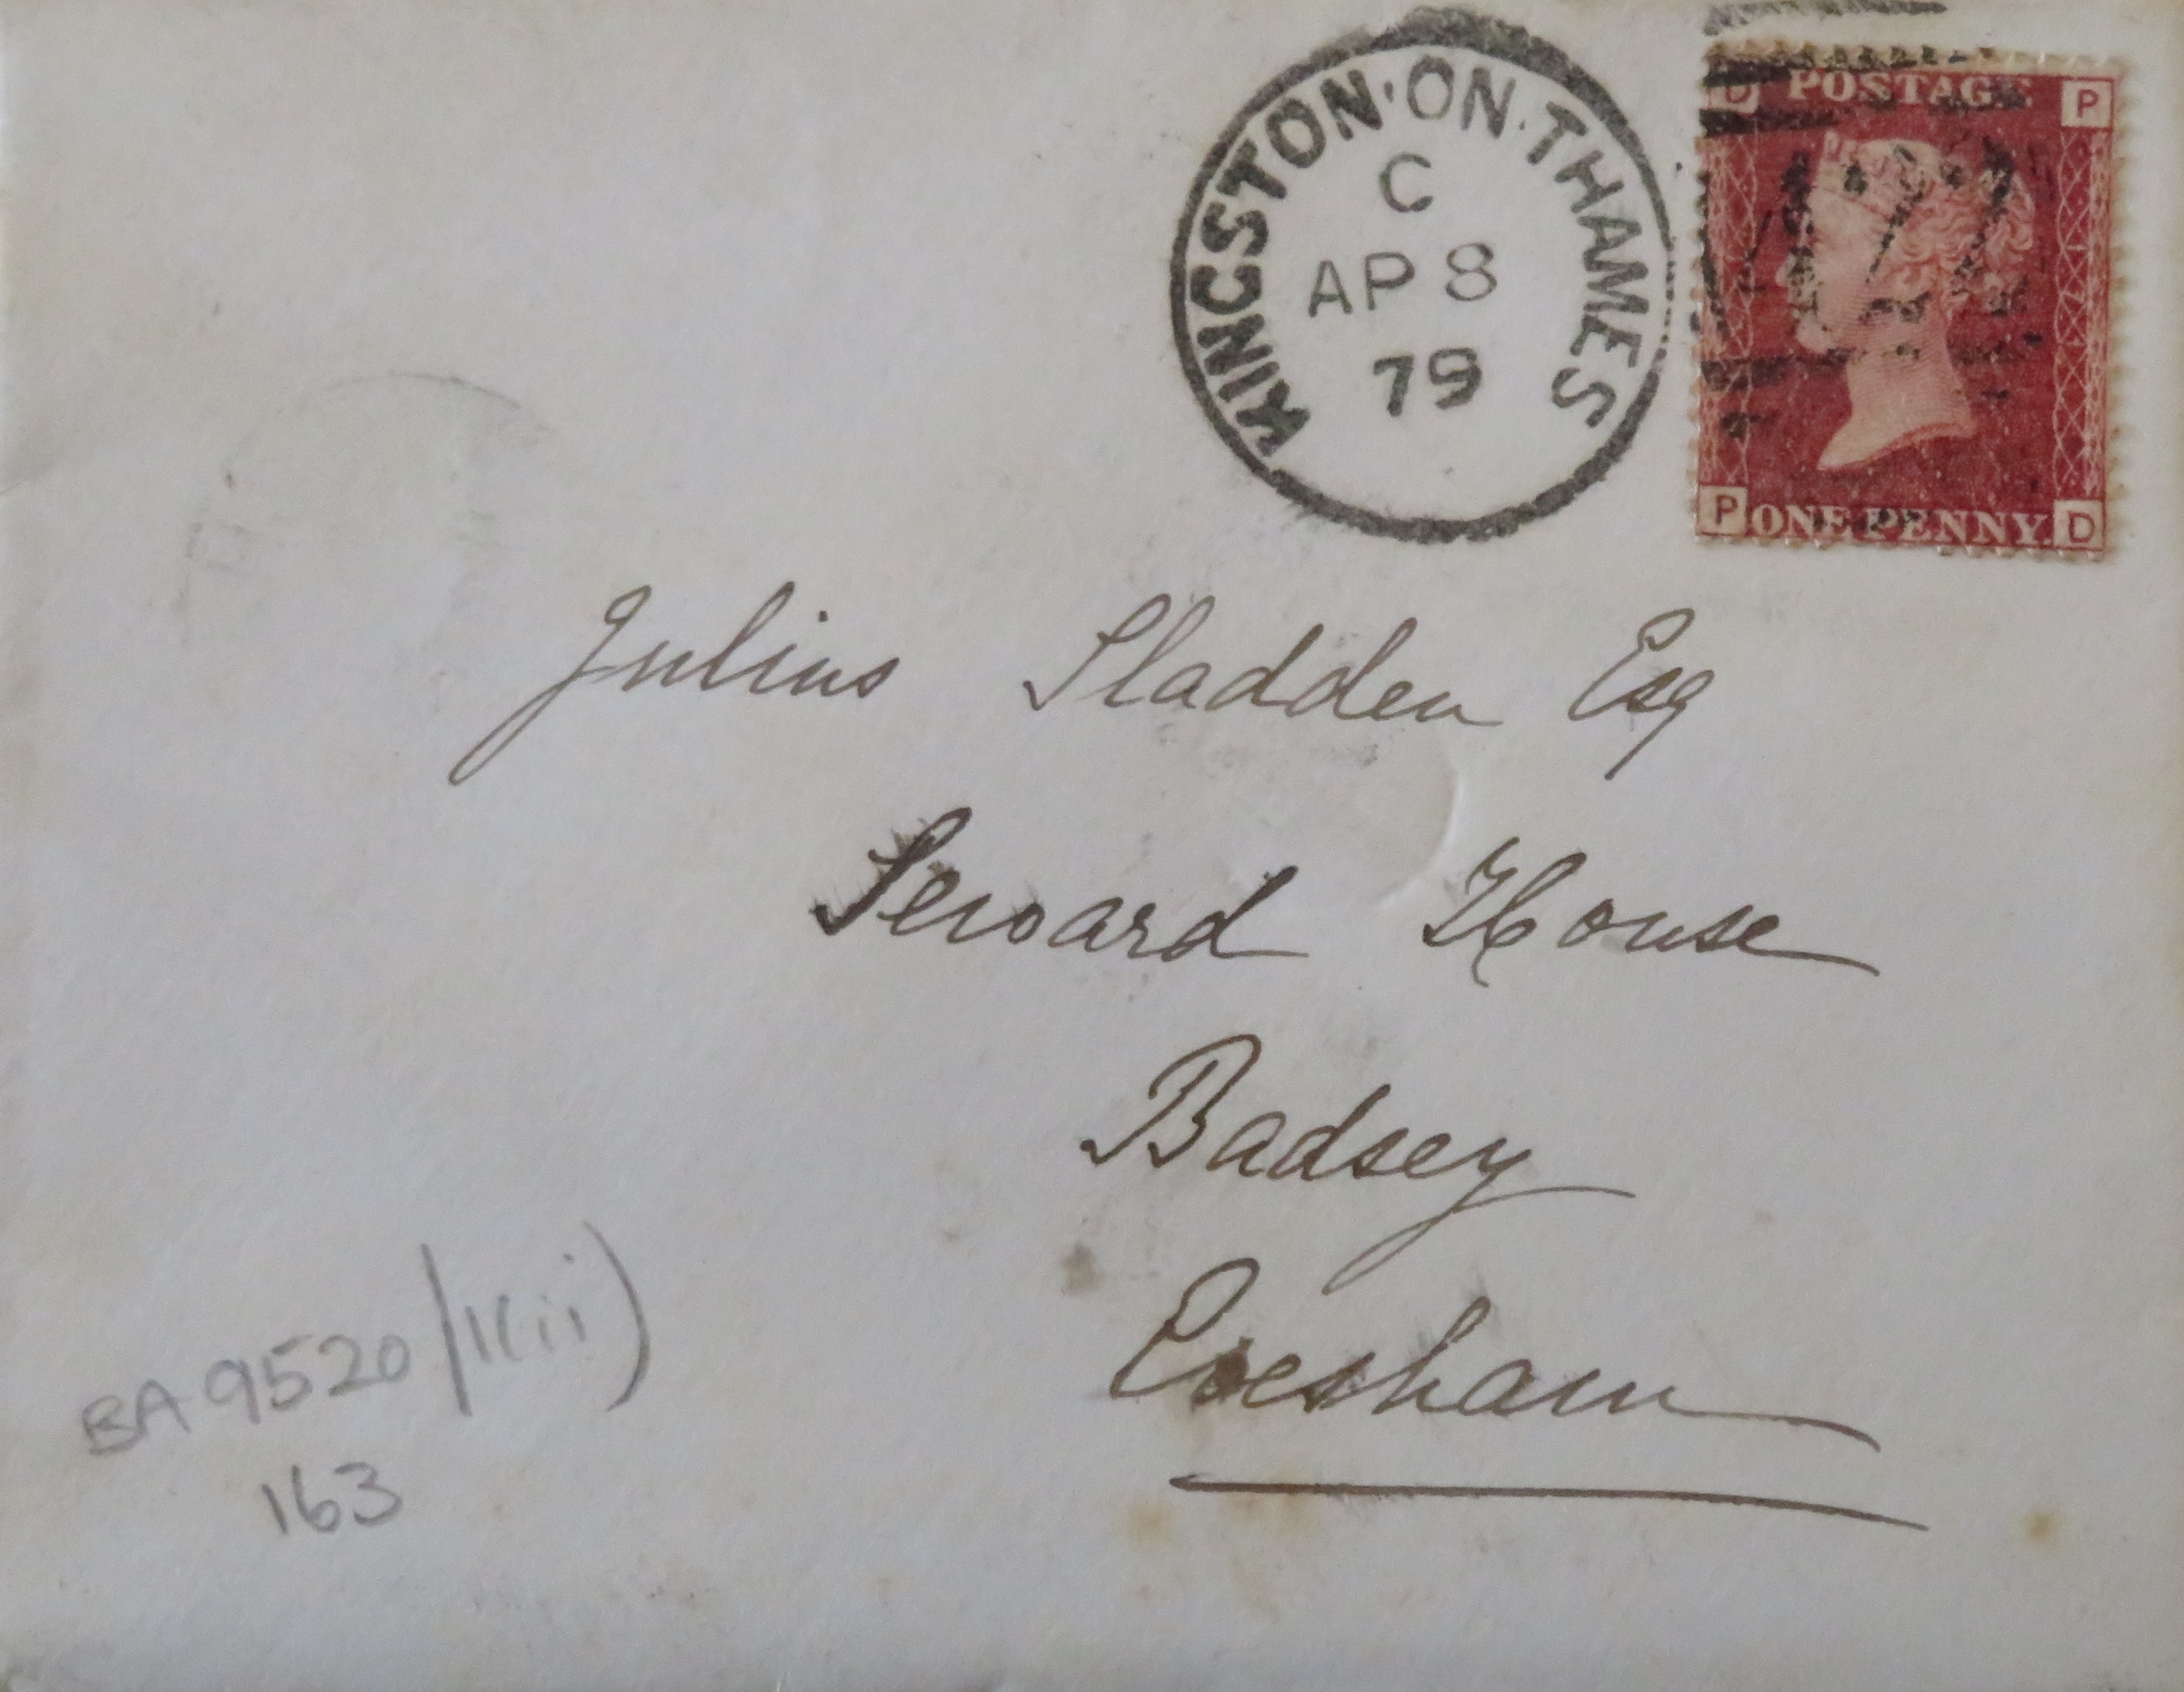 KINGSTON·ON·THAMES
C
AP 8
79
D POSTAGE P
P ONE PENNY. D
Julius Sladden Esq
Seward House
Badsey
Evesham
BA 9520/1(ii)
163